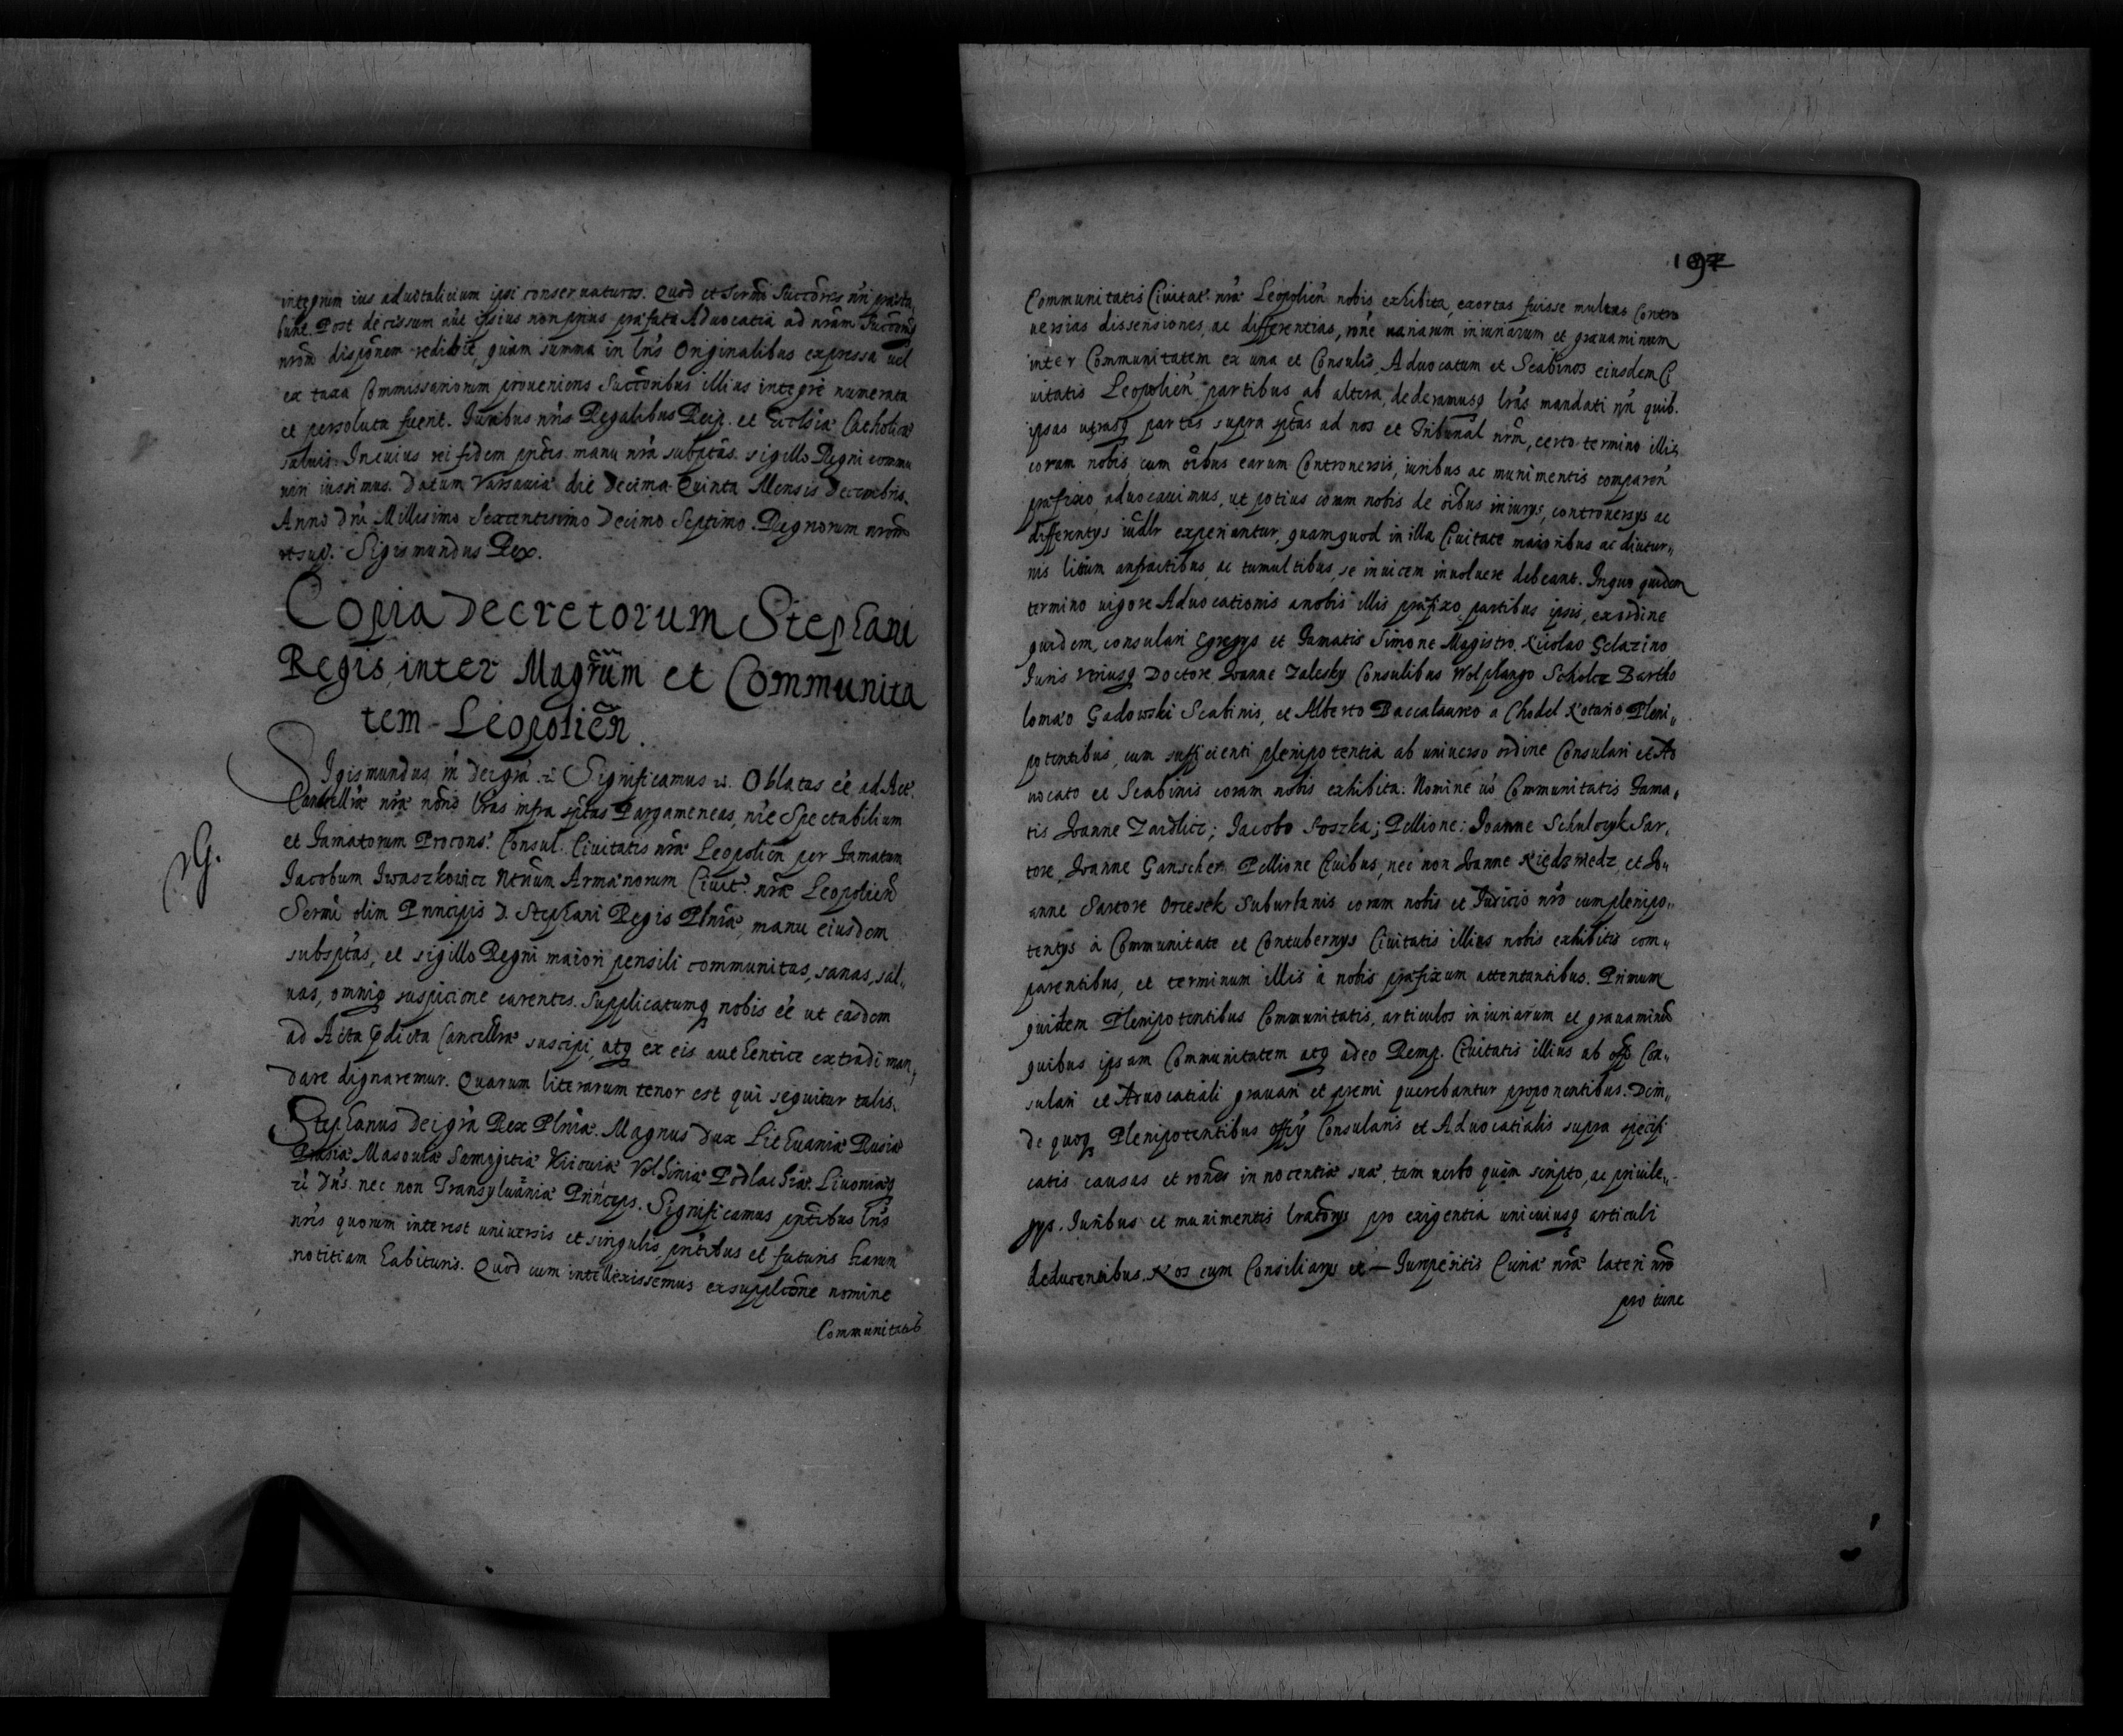 integrum ius aduitalicium ipsi conseruaturos. Quod et Sermi Succres nri præsta
bunt. Post decessum aut ipsius non prius præfata Aduocatia ad nram Succrumq
nrorum disponem redibit, quam summa in lris Originalibus expressa uel
ex taxa Commissariorum proueniens Succoribus illius integre numerata
et persoluta fuerit. Iuribus nris Regalibus Reip. et Eccłsiæ Catholicæ
saluis. In cuius rei fidem pntes manu nra subptas. sigillo Regni commu
niri iussimus. Datum Varsauiæ die Decima Quinta Mensis Decembris
Anno Dni Millesimo Sexcentesimo Decimo Septimo. Regnorum nrorum
ut sup. Sigismundus Rex.
Copia Decretorum Stephani
Regis, inter Magrum et Communita
tem Leopolien.
Sigismundus III Dei gra. Significamus. Oblatas eé ad Act.
Cancellriæ nræ nomo lras infra sptas Pargameneas, nie Spectabilium
et Famatorum Procons. Consul. Ciuitatis nræ Leopolien per Famatum
RG.
Jacobum Iwaszkowicz Ntrium Armænorum Ciuit. nræ Leopolien
Sermi olim Principis D. Stephani Regis Plniæ, manu eiusdem
subsptas, et sigillo Regni maiori pensili communitas, sanas, sal„
uas, omniq suspicione carentes. Supplicatumq nobis eé ut easdem
ad Acta pdicta Cancellræ suscipi, atq ex eis authentice extradi man„
dare dignaremur. Quarum literarum tenor est qui sequitur talis.
Stephanus Dei gra Rex Plniæ. Magnus Dux Lithuaniæ Rusiæ
Prusiæ Masouiæ Samogitiæ Kiiouiæ Volhiniæ Podlachiæ Liuoniæq
zc Dns. nec non Transyluaniæ Princeps. Significamus pntibus lris
nris quorum interest uniuersis et singulis, pntibus et futuris harum
notitiam habituris. Quod cum intellexissemus ex supplicone nomine
Communitatis
197
Communitatis Ciuitat. nræ Leopolien nobis exhibita, exortas fuisse multas Contro
uersias dissensiones, ac differentias, rone uariarum iniuriarum et grauaminum
inter Communitatem ex una et Consules, Aduocatum et Scabinos eiusdem Ci
uitatis Leopolien partibus ab altera, dederamusq lras mandati nri quib.
ipsas utrasq partes supra sptas ad nos et Tribunal nrm, certo termino illis
coram nobis cum oibus earum Controuersis, iuribus ac munimentis comparen
præfixo, aduocauimus, ut potius coram nobis de oibus iniurys, controuersys ac
differentys iudlr experiantur, quamquod in illa Ciuitate maioribus ac diutur„
nis litium anfractibus, ac tumultibus, se inuicem inuoluere debeant. In quo quidem
termino uigore Aduocationis a nobis illis præfixo, partibus ipsis, ex ordine
quidem, consulari Egregys et Famatis Simone Magistro. Nicolao Gelazino
Iuris Vtriusq Doctore, Ioanne Zalesky Consulibus Wolphango Scholcz Bartho
lomæo Gadowski Scabinis, et Alberto Baccalaureo a Chodel Notario, Pleni„
potentibus, cum sufficienti plenipotentia ab uniuerso ordine Consulari et Ad
uocato et Scabinis coram nobis exhibita. Nomine uo Communitatis Fama„
tis Ioanne Zaidlicz; Jacobo Soszka; Pellione; Ioanne Schulczyk Sar„
tore, Ioanne Ganscher Pellione Ciuibus, nec non Ioanne Niedzwiedz, et Io„
anne Sartore Orzesek Suburbanis coram nobis et Iudicio nro cum plenipo„
tentys à Communitate et Contubernys Ciuitatis illius nobis exhibitis com„
parentibus, et terminum illis à nobis præfixum attentantibus. Primum
quidem Plenipotentibus Communitatis, articulos iniuriarum et grauaminum
quibus ipsam Communitatem atq adeo Remp. Ciuitatis illius ab offo Con„
sulari et Aduocatiali grauari et premi querebantur proponentibus. Dein„
de quoq Plenipotentibus offiy Consularis et Aduocatialis supra specifi
catis causas et rones innocentiæ suæ, tam uerbo quam scripto, ac priuile„
gys. Iuribus et munimentis lratorys pro exigentia uniuiusq articuli
deducentibus. Nos cum Consiliarys et — Iurisperitis Curiæ nræ lateri nro
pro tunc